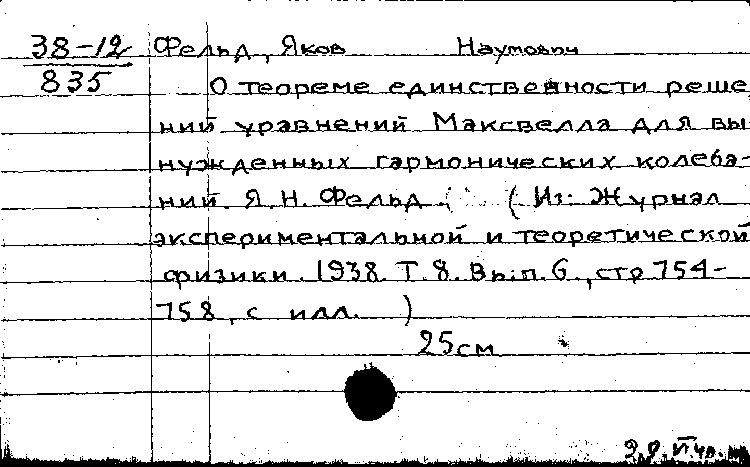 38-12 Фельд, Яков Наумович
835 О теореме единственности реше
ний уравнений Максвелла для вы
нужденных гармонических колеба-
ний. Я.Н. Фельд. (Из: Журнал
экспериментальной и теоретической
физики. 1938. Т. 8. Вып. 6., стр 754-
758, с илл. )
25см